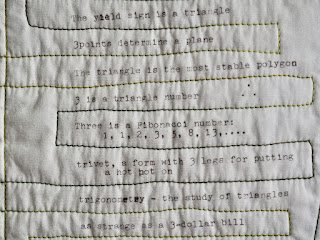 The yield sign is a triangle
3points determine a plane
The triangle is the most stable polygon
3 is a triangle number
Three is a Fibonacci number:
1, 1, 2, 3, 5, 8, 13,....
trivet, a form with 3 legs for putting
a hot pot on
trigonometry - the study of triangles
as strange as a 3-dollar bill